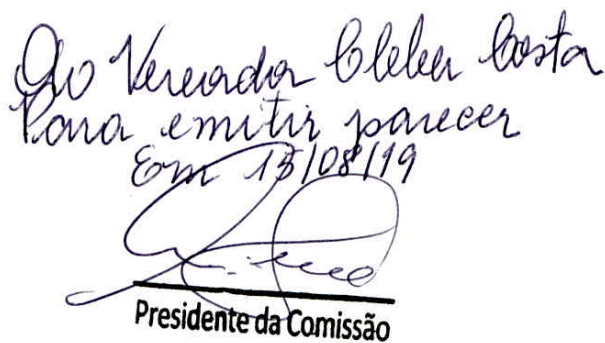 Ao Vereador Cleber Costa
Para emitir parecer
Em 15/08/19
Presidente da Comissão